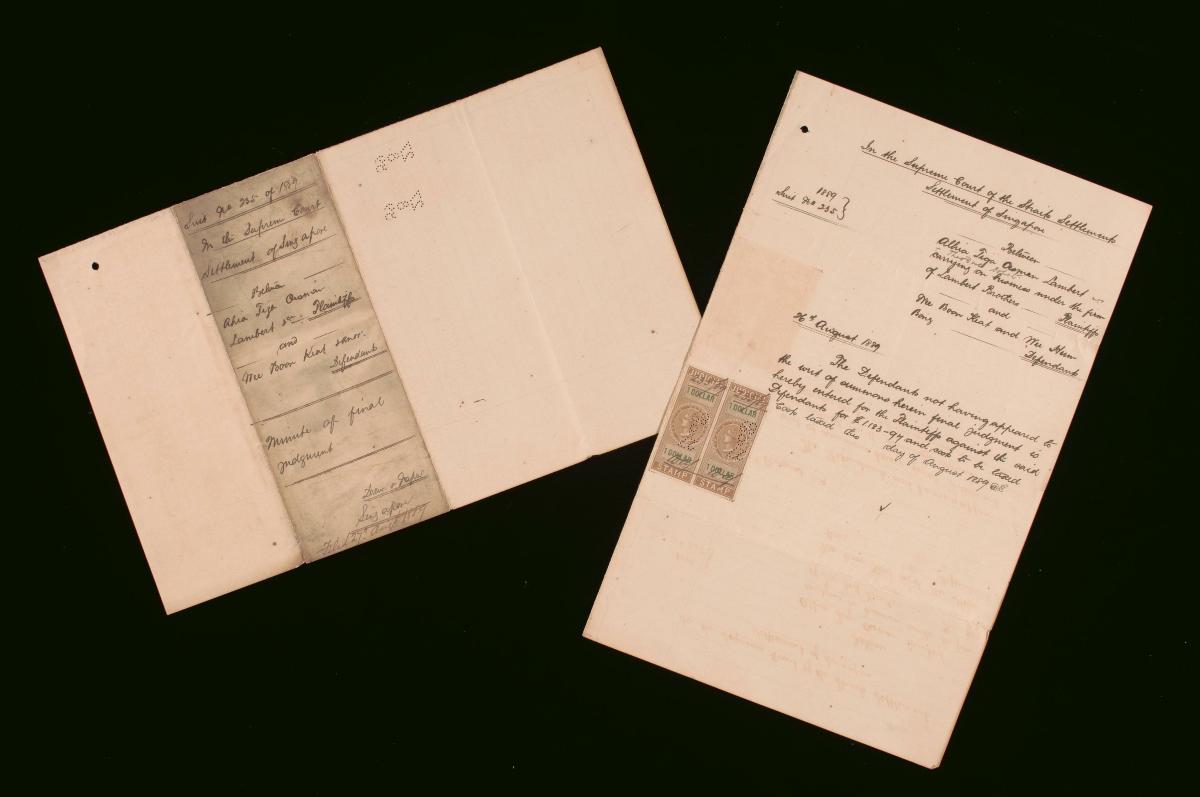 Suit No 235 of 1889
In the Supreme Court
Settlement of Singapore
Between
Ahia Tiga Oosman
Lambert &
Plaintiffs
and
Wee Boon Kiat & anor.
Defendants
Minute of final
judgment
Drew & Napier
Singapore
Filed 27th August 1889
In the Supreme Court of the Straits Settlements
Settlement of Singapore
1889
Suit No 235
Between
Ahia Tiga Oosman Lambert
carrying on business under the firm
of Lambert Brothers
Plaintiffs
and
Wee Boon Kiat and Wee Hum
Bong
Defendants
26th August 1889
The Defendants not having appeared to
the writ of summons herein final judgment is
hereby entered for the Plaintiffs against the said
Defendants for $1,183-94 and costs to be taxed
Costs taxed this day of August 1889 @ $
JUDICIAL JUDICIAL
1 DOLLAR 1 DOLLAR
1 DOLLAR 1 DOLLAR
STAMP STAMP